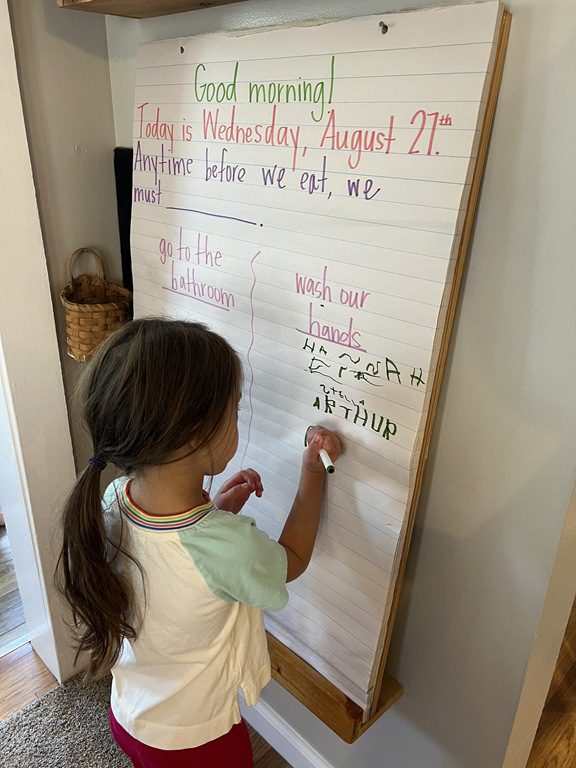 Good morning!
Today is Wednesday, August 27th.
Anytime before we eat, we
must ________.
go to the
bathroom
wash our
hands
HANNAH
STELLA
ARTHUR